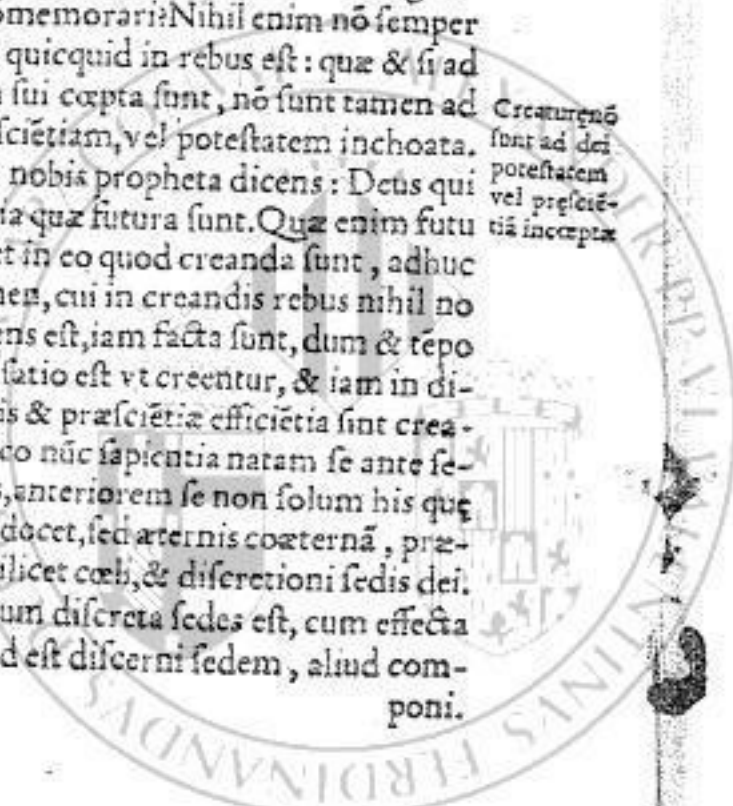 omemorari?Nihil enim nō semper
quicquid in rebus est : quæ & si ad
sui cœpta sunt, nō sunt tamen ad
sciētiam, vel potestatem inchoata.
nobis propheta dicens : Deus qui
quæ futura sunt. Quæ enim futu
et in eo quod creanda sunt, adhuc
men, cui in creandis rebus nihil no
ens est, iam facta sunt, dum & tēpo
satio est vt creentur, & iam in di-
is & præsciētiæ efficiētia sint crea-
co nūc sapientia natam se ante se-
anteriorem se non solum his quę
docet, sed æternis coæternā, præ-
ilicet cœli, & discretioni sedis dei.
um discreta sedes est, cum effecta
d est discerni sedem, aliud com-
poni.
Creaturę nō
sunt ad dei
potestatem
vel pręsciē-
tiā incœptæ